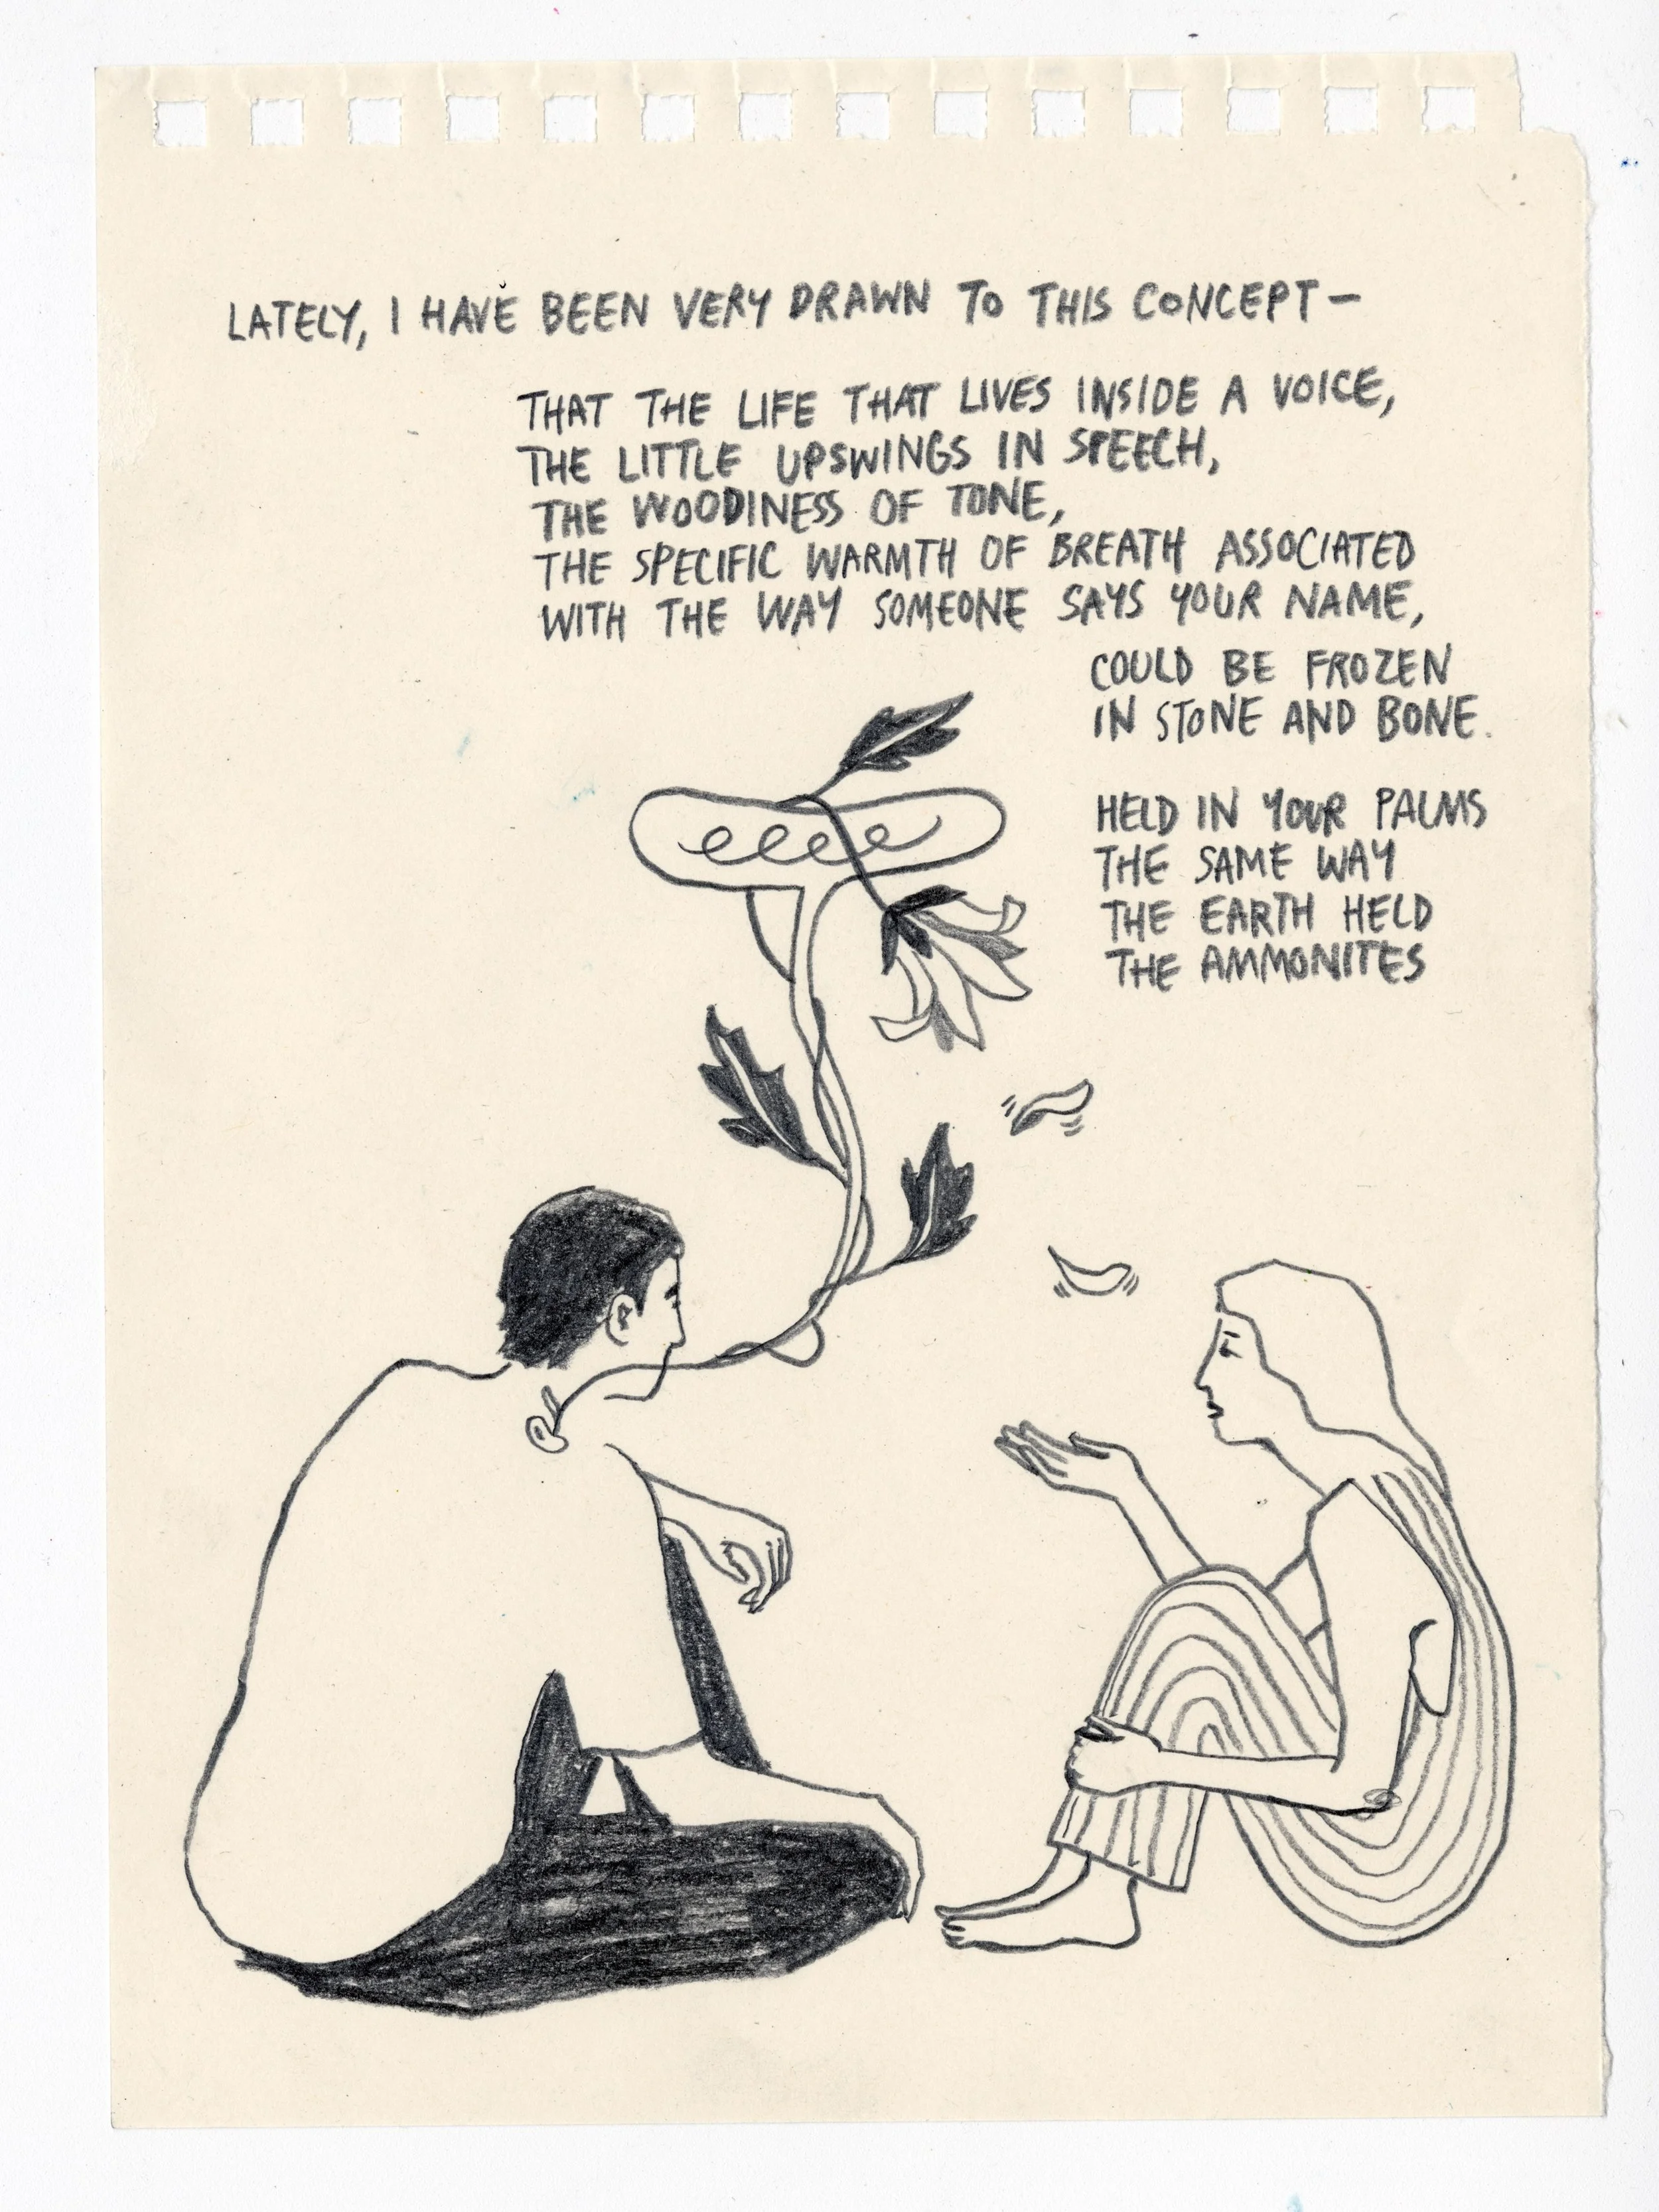 LATELY, I HAVE BEEN VERY DRAWN TO THIS CONCEPT —
THAT THE LIFE THAT LIVES INSIDE A VOICE,
THE LITTLE UPSWINGS IN SPEECH,
THE WOODINESS OF TONE,
THE SPECIFIC WARMTH OF BREATH ASSOCIATED
WITH THE WAY SOMEONE SAYS YOUR NAME,
COULD BE FROZEN
IN STONE AND BONE.
HELD IN YOUR PALMS
THE SAME WAY
THE EARTH HELD
THE AMMONITES